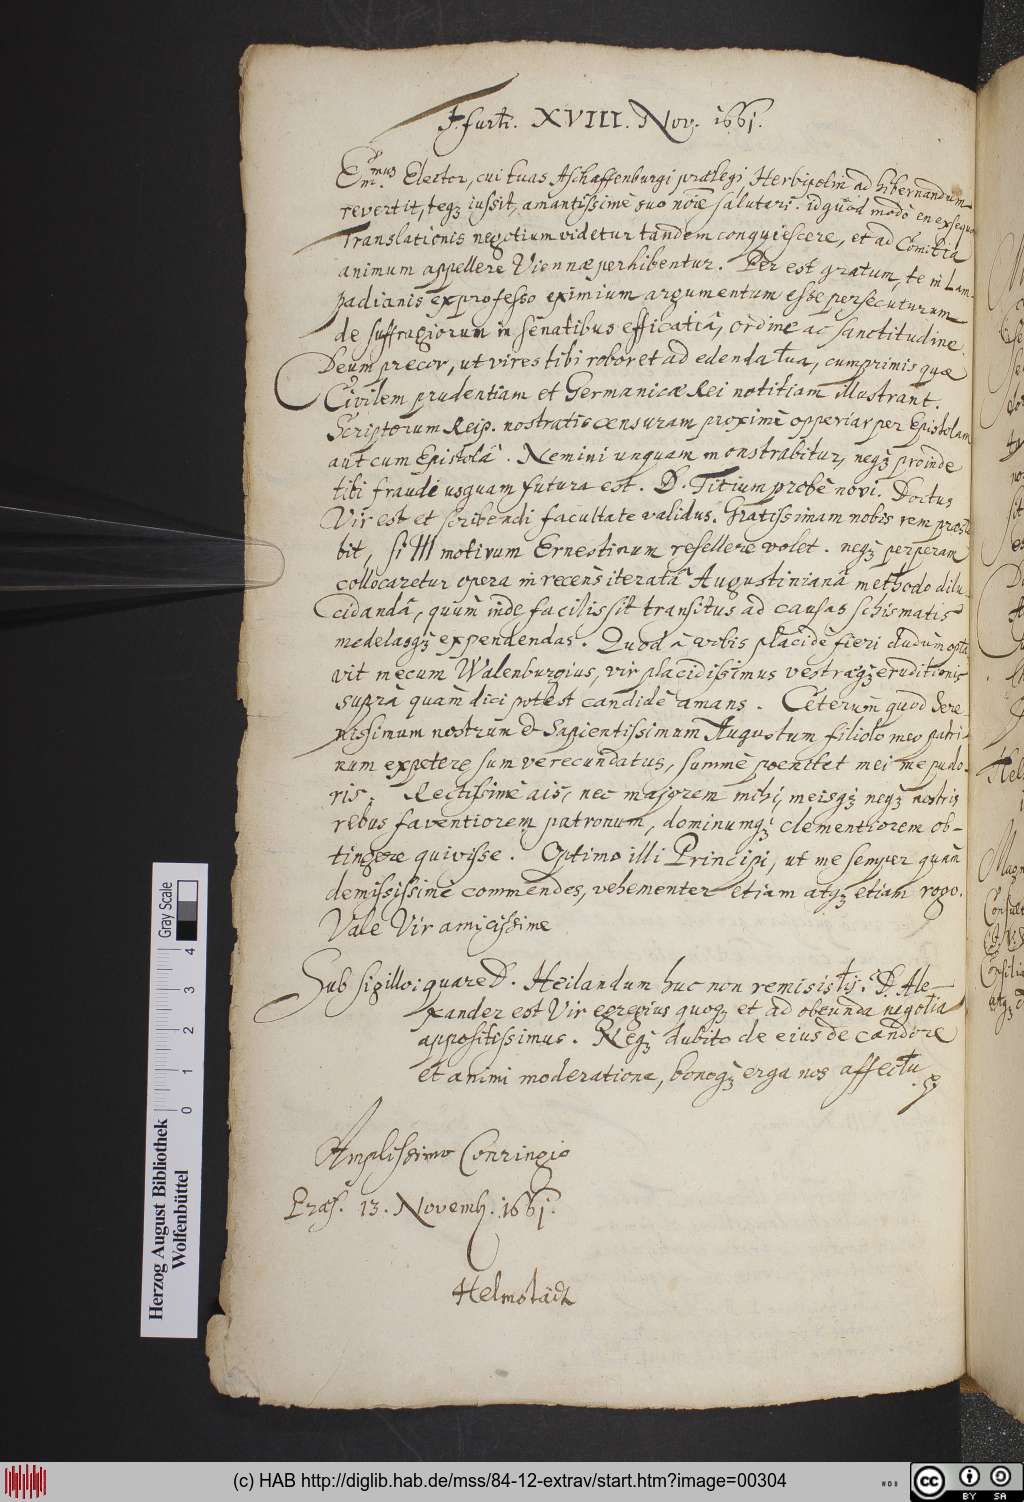 Ffurti. XVIII. Nov. 1661.
Emus Elector, cui tuas Aschaffenburgi prælegi Herbipolin ad hibernandum
revertit, teqz iussit, amantissimè suo noĩe salutari. id quod modò en exsequor
Translationis negotium videtur tandem conquiescere, et ad Comitia
animum appellere Viennæ perhibentur. Per est gratum, te in Lam-
padianis ex professo eximium argumentum esse persecuturum
de suffragiorum in senatibus efficatiâ, ordine ac sanctitudine.
Deum precor, ut vires tibi roboret ad edenda tua, cumprimis quæ
Civilem prudentiam et Germanicæ Rei notitiam illustrant.
Scriptorum Reip. nostratis censuram proximè opperiar per Epistolam
aut cum Epistolâ. Nemini unquam monstrabitur, neqz proinde
tibi fraudi usquam futura est. D. Titium probè novi. Doctus
Vir est et scribendi facultate validus. Gratissimam nobis rem præsta
bit, si III motivum Ernestinum refellere volet. neqz perperam
collocaretur opera in recens iteratâ Augustinianâ methodo dilu
cidandâ, quum inde facilis sit transitus ad causas schismatis
medelasqz expendendas. Quod à vobis placidè fieri dudum opta
vit mecum Walenburgius, vir placidissimus vestræqz eruditionis
suprà quam dici potest candidè amans. Ceterùm quod Sere-
nissimum nostrum & Sapientissimum Augustum filiolo meo patri-
num expetere sum verecundatus, summè poenitet mei me pudo-
ris. Rectissimè ais, nec majorem mihi, meisqz neqz nostris
rebus faventiorem patronum, dominumqz clementiorem ob-
tingere quivisse. Optimo illi Principi, ut me semper quàm
demississimè commendes, vehementer etiam atqz etiam rogo.
Vale Vir amicissime
Sub sigillo: quare D. Heilandum huc non remisistis. D. Ale-
xander est Vir egregius quoqz et ad obeunda negotia
appositissimus. Neqz dubito de eius de candore
et animi moderatione, bonoqz erga nos affectu.
Amplissimo Conringio
Præs. 13. Novemb. 1661.
Helmstadt
Herzog August Bibliothek
Wolfenbüttel
0 1 2 3 4
Gray Scale
(c) HAB http://diglib.hab.de/mss/84-12-extrav/start.htm?image=00304
cc BY SA